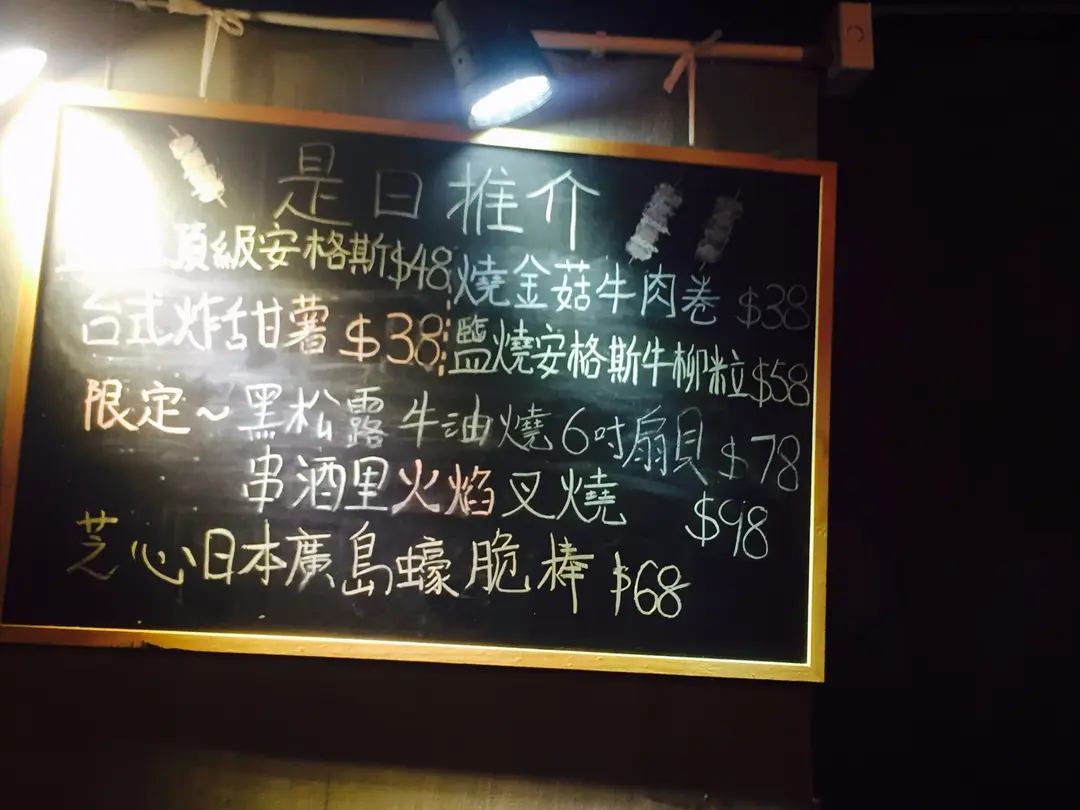 是日推介
頂級安格斯$48
燒金菇牛肉卷 $38
台式炸甜薯 $38
鹽燒安格斯牛柳粒$58
限定~黑松露牛油燒6吋扇貝 $78
串酒里火焰叉燒 $98
芝心日本廣島蠔脆棒 $68